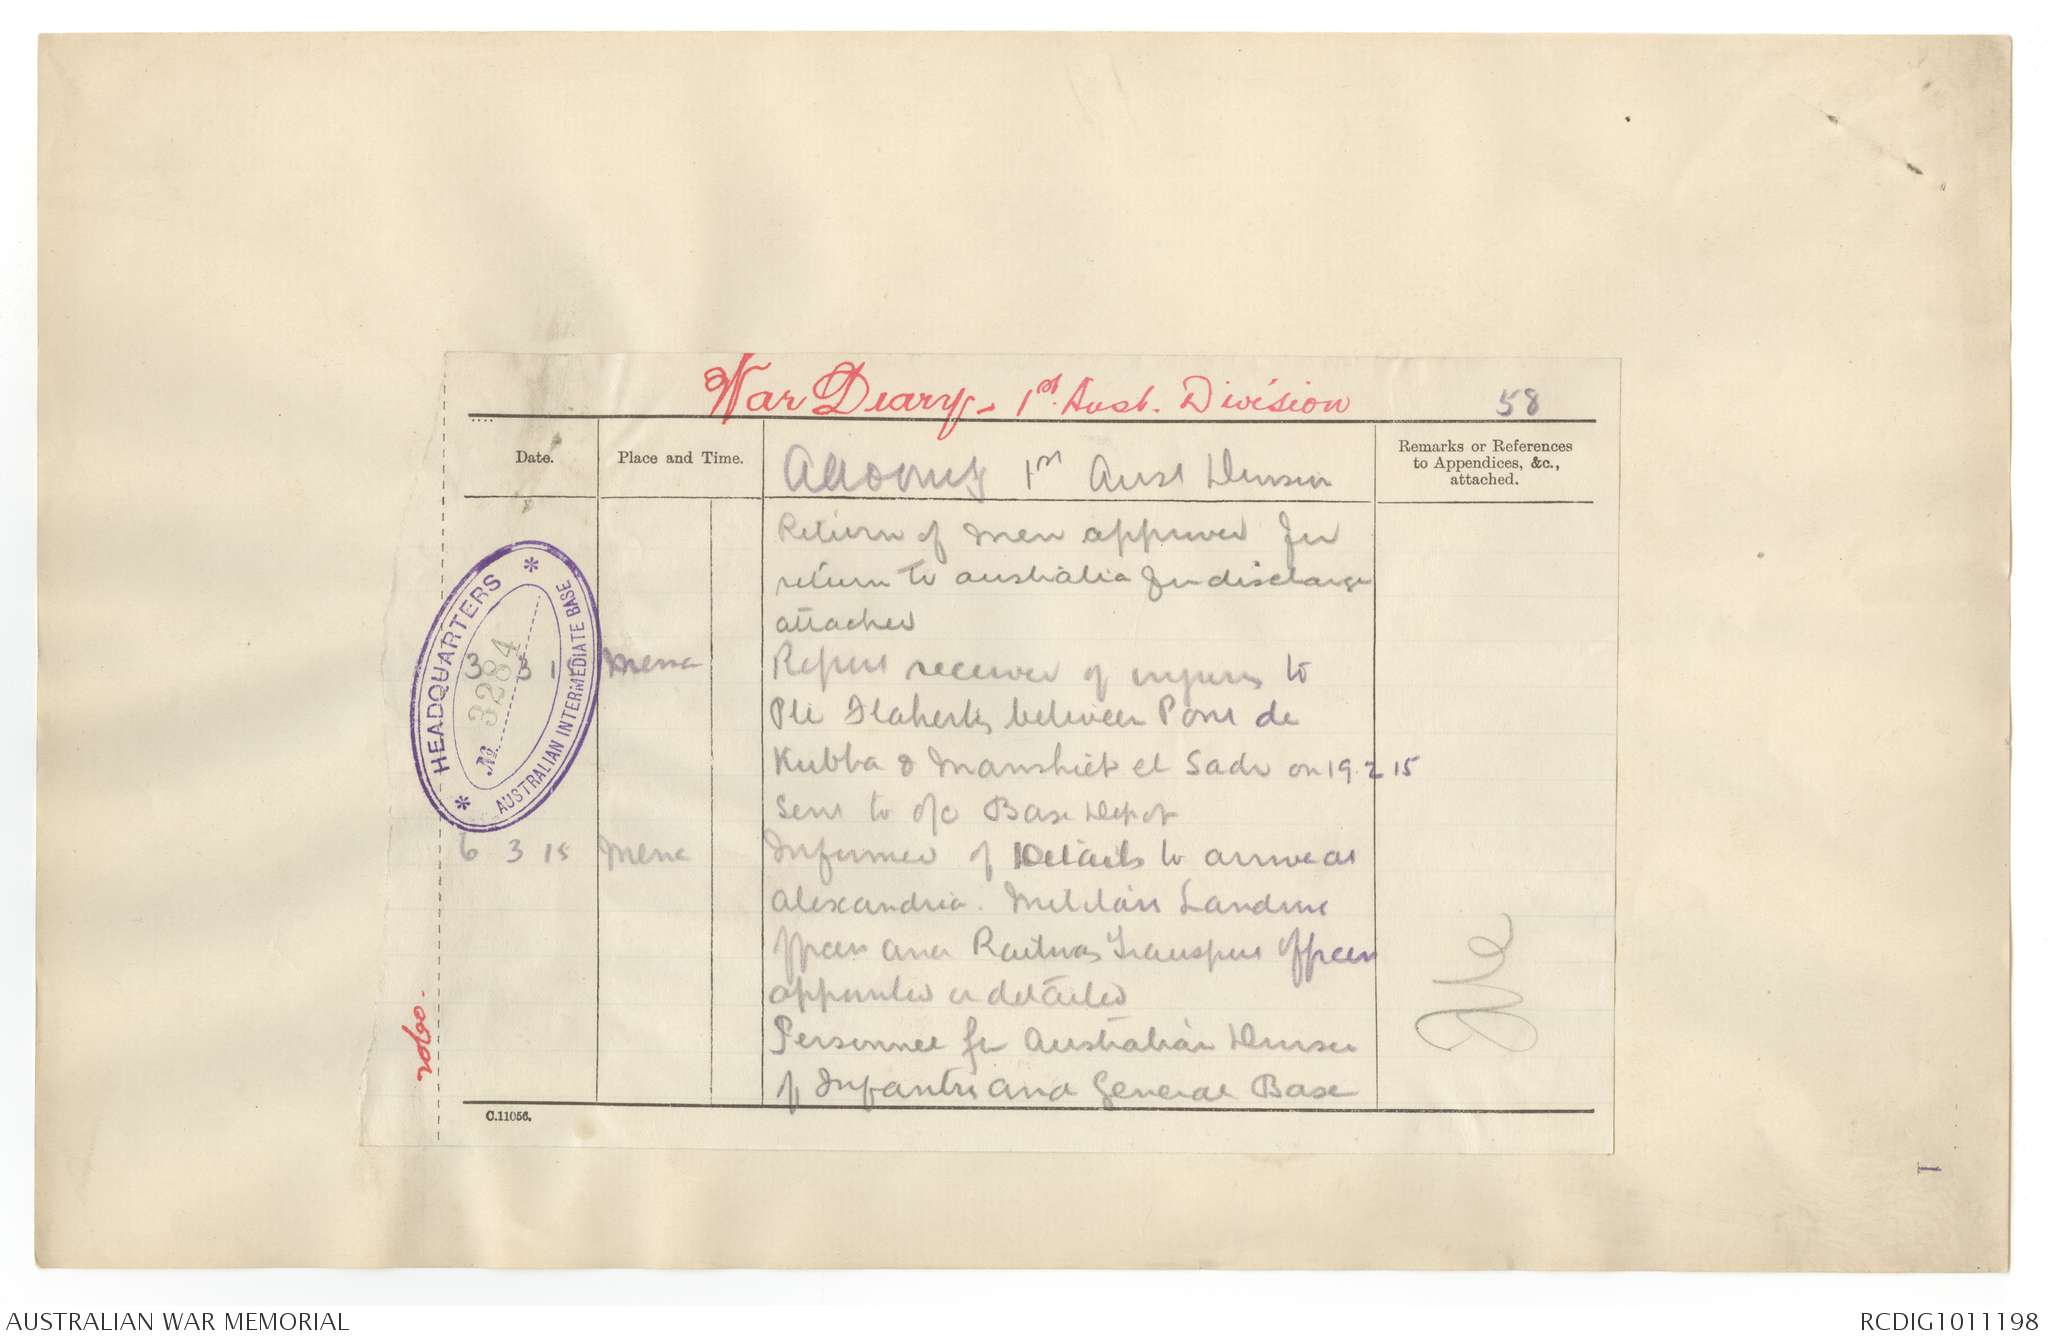 War Diary - 1st Aust. Division
58
Date.
Place and Time.
AAQMG 1st Aust Division
Remarks or References
to Appendices, &c.,
attached.
Return of men approved for
return to Australia for discharge
attached
3 3 15 Mena Report received of injuries to
Pte Flaherty between Pont de
Kubba & Manshiet el Sadr on 19.2 15
Sent to o/c Base Depot
6 3 15 Mena Informed of Details to arrive at
Alexandria. Military Landing
Officer and Railway Transport Officer
appointed or detailed
Personnel for Australian Division
of Infantry and General Base
C.11056.
HEADQUARTERS
No. 3284
AUSTRALIAN INTERMEDIATE BASE
1
AUSTRALIAN WAR MEMORIAL
RCDIG1011198